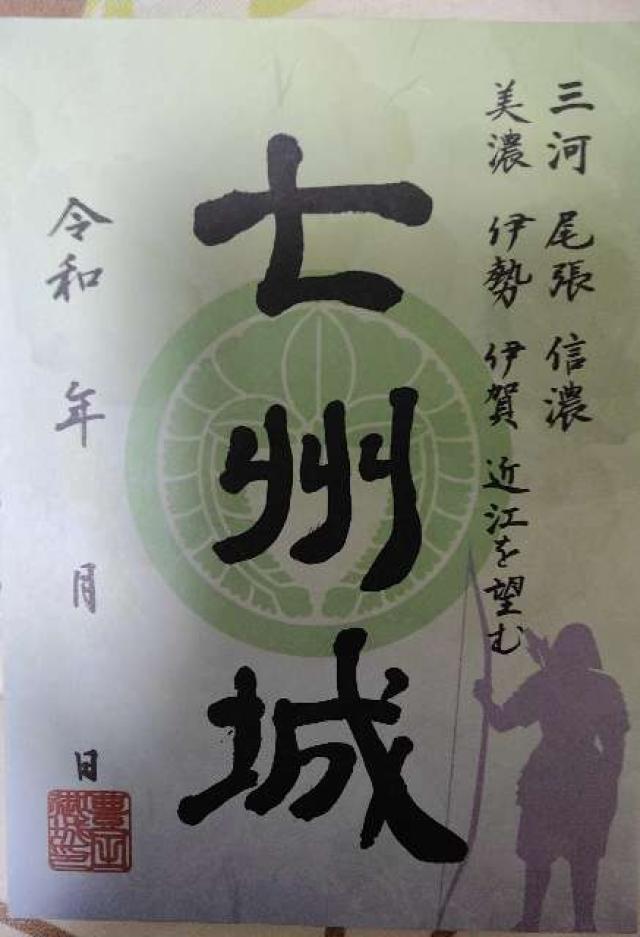 三河 尾張 信濃
美濃 伊勢 伊賀 近江を望む
七州城
令和 年 月 日